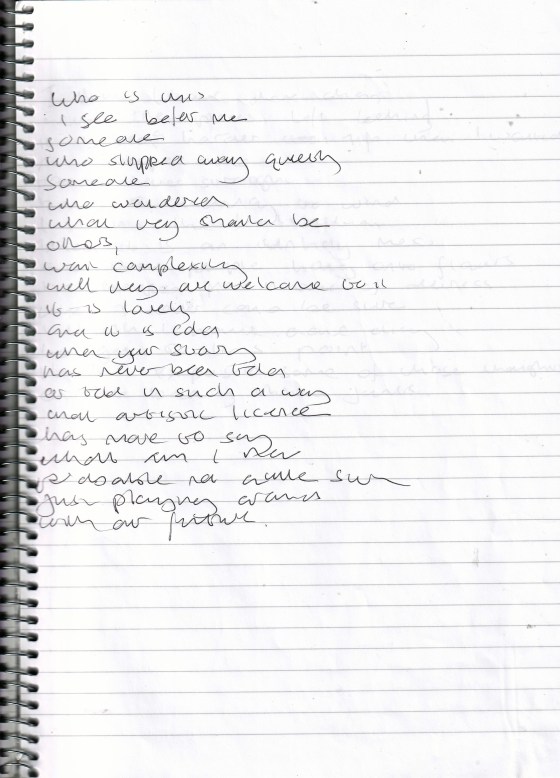 who is this
i see before me
someone
who slipped away quietly
someone
who wandered
what they should be
others,
want complexity
well they are welcome to it
it is lonely
and it is cold
when your story
has never been told
or told in such a way
that artistic licence
has more to say
what am I now
just playing around
with our future.